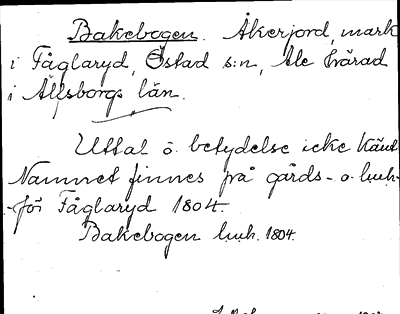 Bakebogen. Åkerjord, mark
i Fåglaryd, Östad s:n, Ale härad
i Älfsborgs län.
Uttal o. betydelse icke känd
Namnet finnes på gårds- o. huk-
-för Fåglaryd 1804.
Bakebogen huk. 1804.